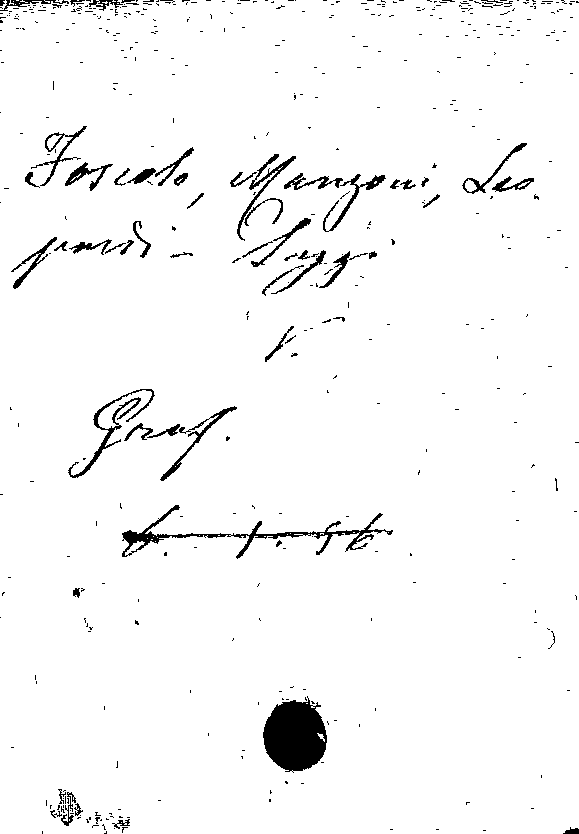 Foscolo, Manzoni, Leo
pardi - Saggi
V.
Graf.